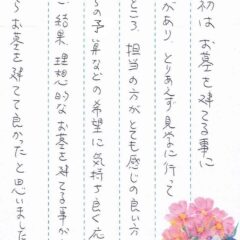 初は お墓を建てる事に
があり とりあえず見学に行って
ところ、担当の方がとても感じの良い方
らの予算などの希望に気持ち良く応
ご 結果 理想的なお墓を建てる事が
らお墓を建てて良かったと思いました